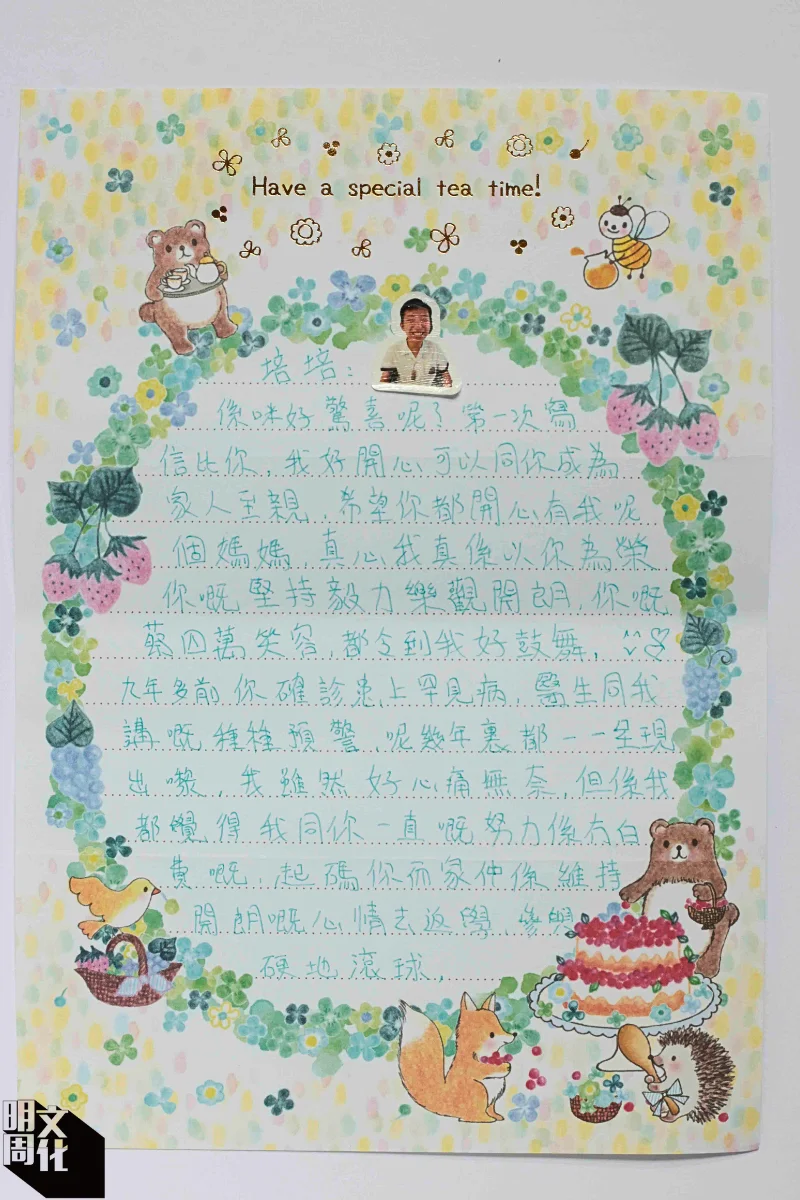 Have a special tea time!
培培：
係咪好驚喜呢？第一次寫
信比你，我好開心可以同你成為
家人至親，希望你都開心有我呢
個媽媽，真心我真係以你為榮
你嘅堅持毅力樂觀開朗，你嘅
蔡四萬笑容，都令到我好鼓舞，
九年多前你確診患上罕見病，醫生同我
講嘅種種預警，呢幾年裏都一一呈現
出嚟，我雖然好心痛無奈，但係我
都覺得我同你一直嘅努力係冇白
費嘅，起碼你而家仲係維持
開朗嘅心情去返學 參與
硬地滾球，
明周文化